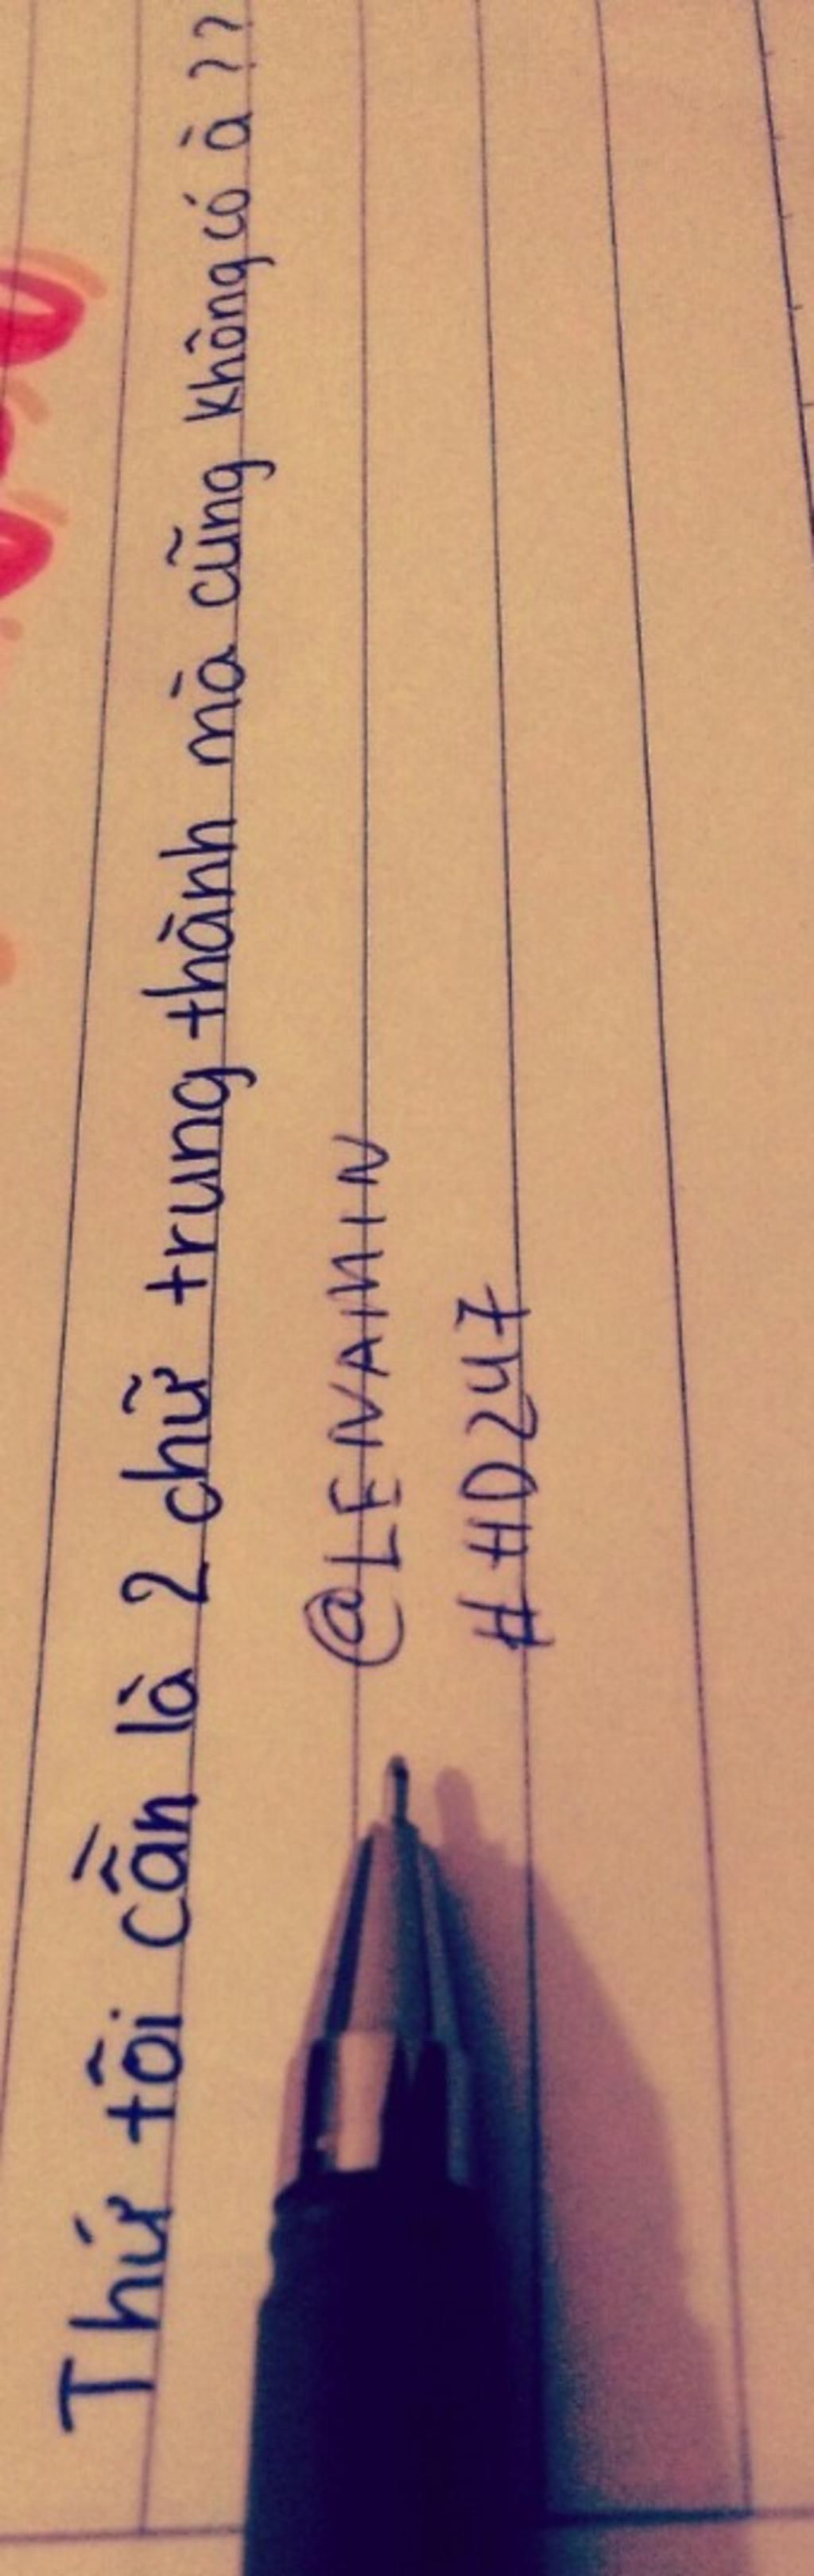 Thứ tôi cần là 2 chữ trung thành mà cũng không có à ??
@LENAMIN
#HD247